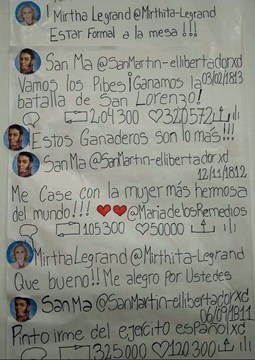 ! Mirtha Legrand @Mirthita-Legrand
Estar Formal a la mesa !!!
San Ma @SanMartin-ellibertadorxd
03/02/1813
Vamos los Pibes¡Ganamos la
batalla de San Lorenzo!
204300 ♡320572
Estos Ganaderos son lo más!!!
San Ma @SanMartin-ellibertadorxd
12/11/1812
Me Case con la mujer más hermosa
del mundo!!! ❤❤@MariadelosRemedios
105300 ♡50000
MirthaLegrand @Mirthita-Legrand
Que bueno!! Me alegro por Ustedes
San Ma @SanMartin-ellibertadorxd
06/09/1811
Pinto irme del ejercito español xd
325000 ♡120300